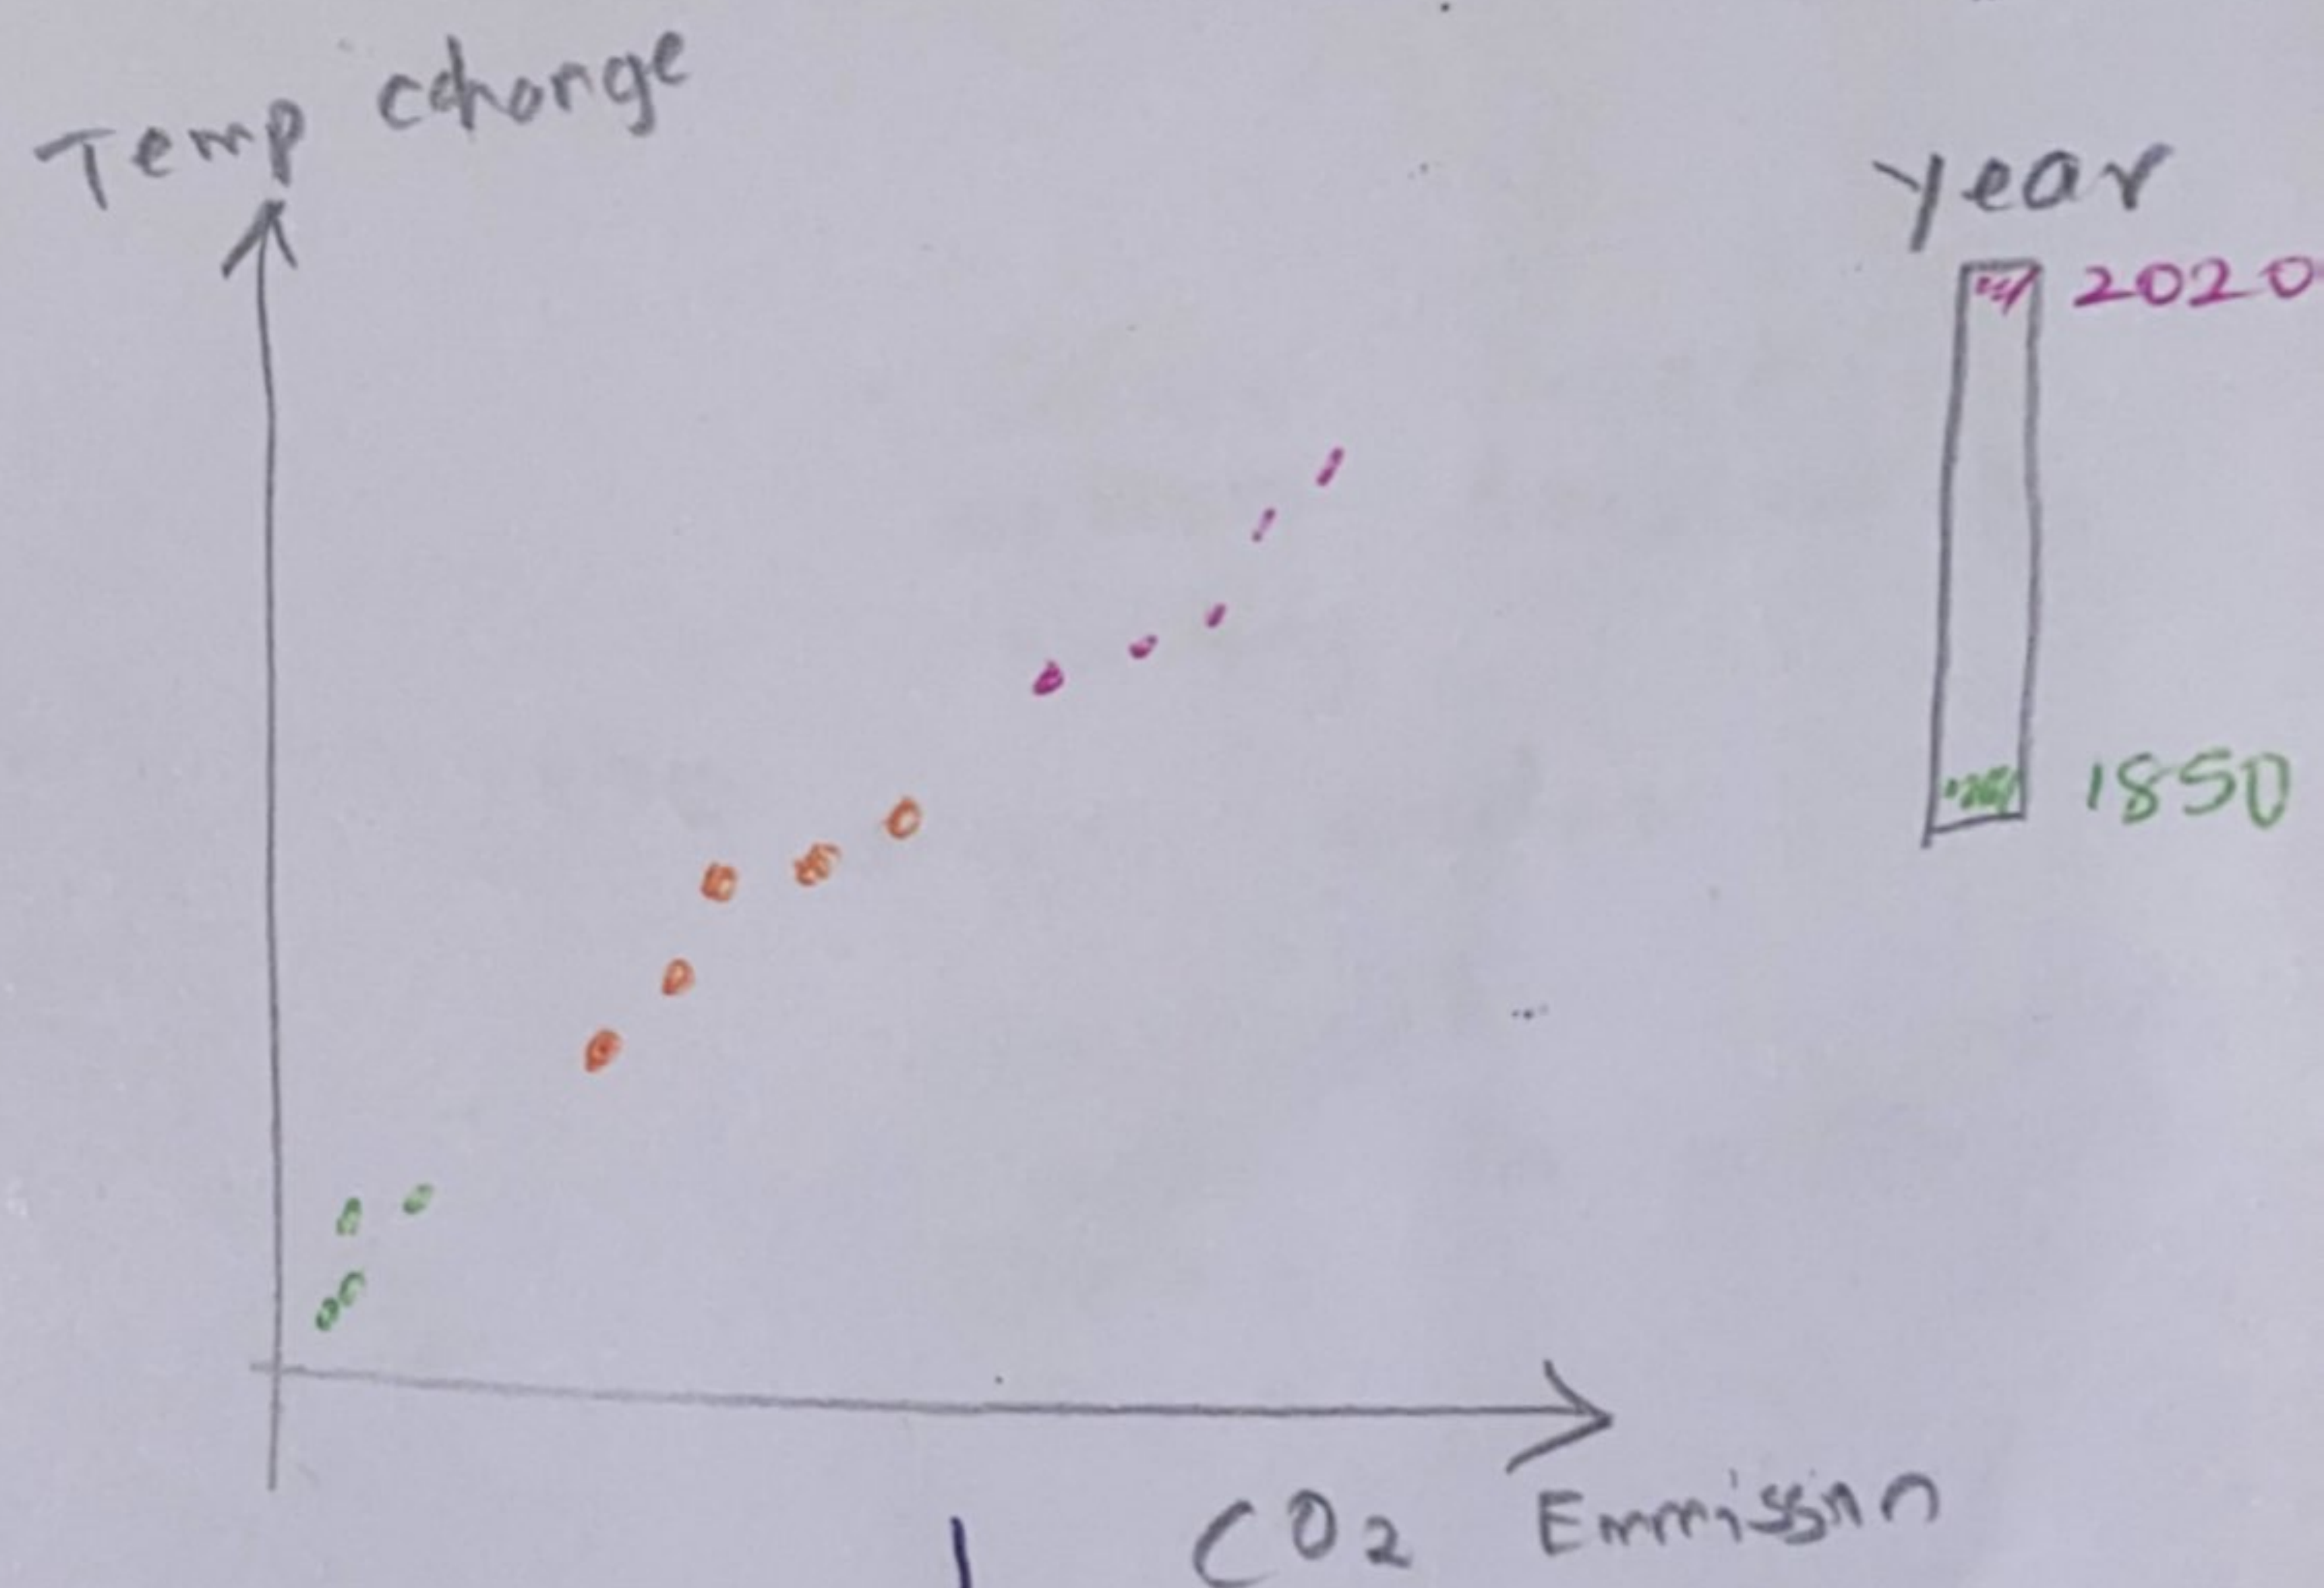 Temp change
year
2020
1850
CO2 Emmission